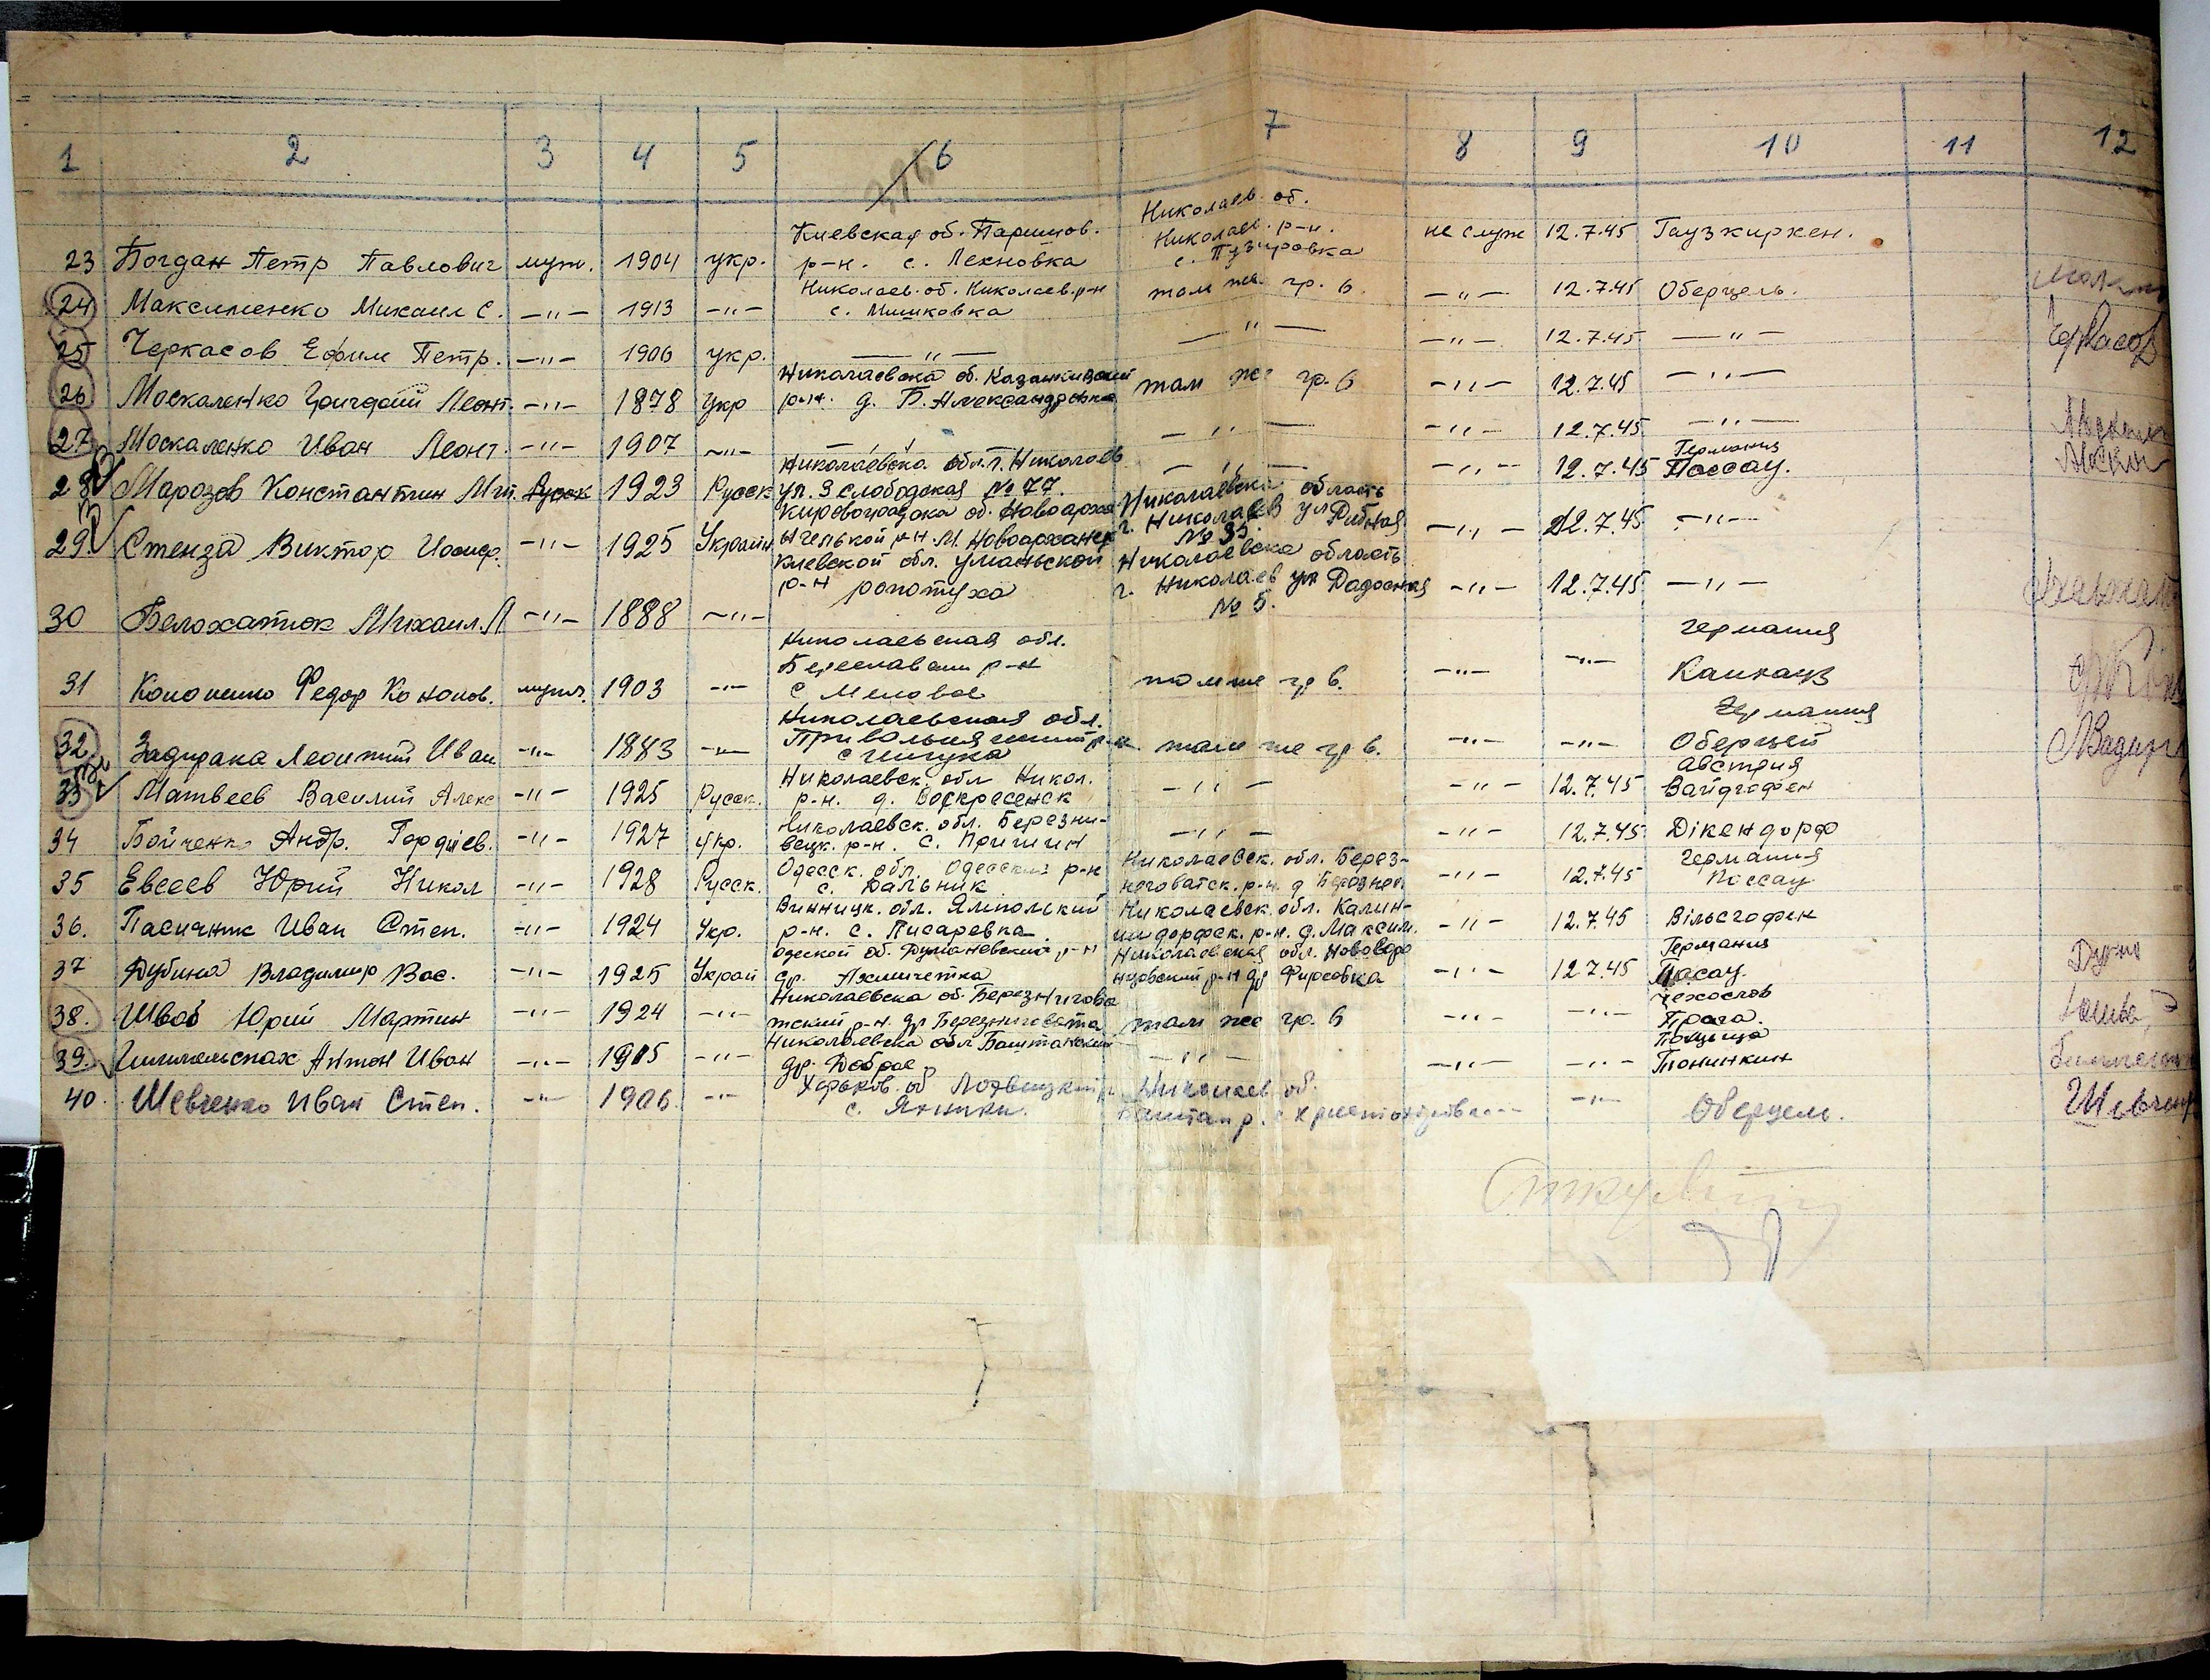 1 2 3 4 5 6 7 8 9 10 11 12
Киевская об. Паришов. Николаев. об.
Николаев. р-н.
23 Богдан Петр Павлович муж. 1904 укр. р-н. с. Лекновка с. Пузировка не служ 12.7.45 Гаузкиркен.
Николаев. об. Николаев. р-н
24 Максименко Михаил С. -"- 1913 -"- с. Мишковка там же гр. 6. -"- 12.7.45 Оберцель.
25 Черкасов Ефим Петр. -"- 1906 укр. -"- -"- -"- 12.7.45 -"- Черкасов
Николаевска об. Казанкивский
26 Москаленко Григорий Леонт. -"- 1878 укр р-н. д. В. Александровка там же гр. 6 -"- 12.7.45 -"-
27 Москаленко Иван Леонт. -"- 1907 -"- -"- -"- 12.7.45 -"-
Николаевска обл. г. Николаев Германия
28 Марозов Константин Мит. Русск 1923 Русск ул. 3 слободская № 77. -"- -"- 12.7.45 Пассау.
Кировоградска об. Новоарха Николаевска область
29 Стенза Виктор Иосиф. -"- 1925 Украин нгельской р-н. М. Новоарханск г. Николаев ул Рибная № 35 -"- 12.7.45 -"-
Киевской обл. уманьской Николаевска область
р-н ропотуха г. Николаев ул Дадосная
30 Белохатюк Михаил.Л -"- 1888 -"- № 5. -"- 12.7.45 -"-
Николаевская обл. Германия
Береславский р-н
31 Кононенко Федор Кононов. мужч. 1903 -"- с Меловое там же гр 6. -"- -"- Канкауз
Николаевская обл. Германия
Привольнянский р-н
32 Задирака Леонтий Иван -"- 1883 -"- с Шпука там же гр 6. -"- -"- Оберцел
Николаевск. обл Никол. Австрия
33 Матвеев Василий Алекс -"- 1925 Русск. р-н. д. Воскресенск -"- -"- 12.7.45 Вайдгофен
Николаевск. обл. Березни-
34 Бойченко Андр. Гордиев. -"- 1927 укр. вецк. р-н. с. Пришиб -"- -"- 12.7.45 Дікендорф
Одесск. обл. Одесский р-н Николаевск. обл. Берез- Германия
35 Евсеев Юрий Никол -"- 1928 Русск. с. Дальник неговатск. р-н. д Березнег. -"- 12.7.45 Пассау
Винницк. обл. Ямпольский Николаевск. обл. Калин-
36. Пасичник Иван Степ. -"- 1924 Укр. р-н. с. Писаревка индорфск. р-н. д. Максим. -"- 12.7.45 Вільсгофен
одеской об. Думаневский р-н Николаевская обл. Нововоро Германия
37 Дубина Владимир Вас. -"- 1925 Украи др. Акмичетка нцовский р-н др Фирсовка -"- 12.7.45 Пасау.
Николаевска об. Березнигова Чехослов
38. Швов Юрий Мартин -"- 1924 -"- тский р-н. др Березниговата там же гр. 6 -"- -"- Прага.
Николаевска обл Баштанский
39. Шимельспах Антон Иван -"- 1905 -"- др. Доброе -"- -"- -"- Тонинкин
Харьков. об Лохвицкий р. Николаев об.
40. Шевченко Иван Степ. -"- 1906. -"- с. Яхники. Баштан р. -"- Оберцель. Шевченко